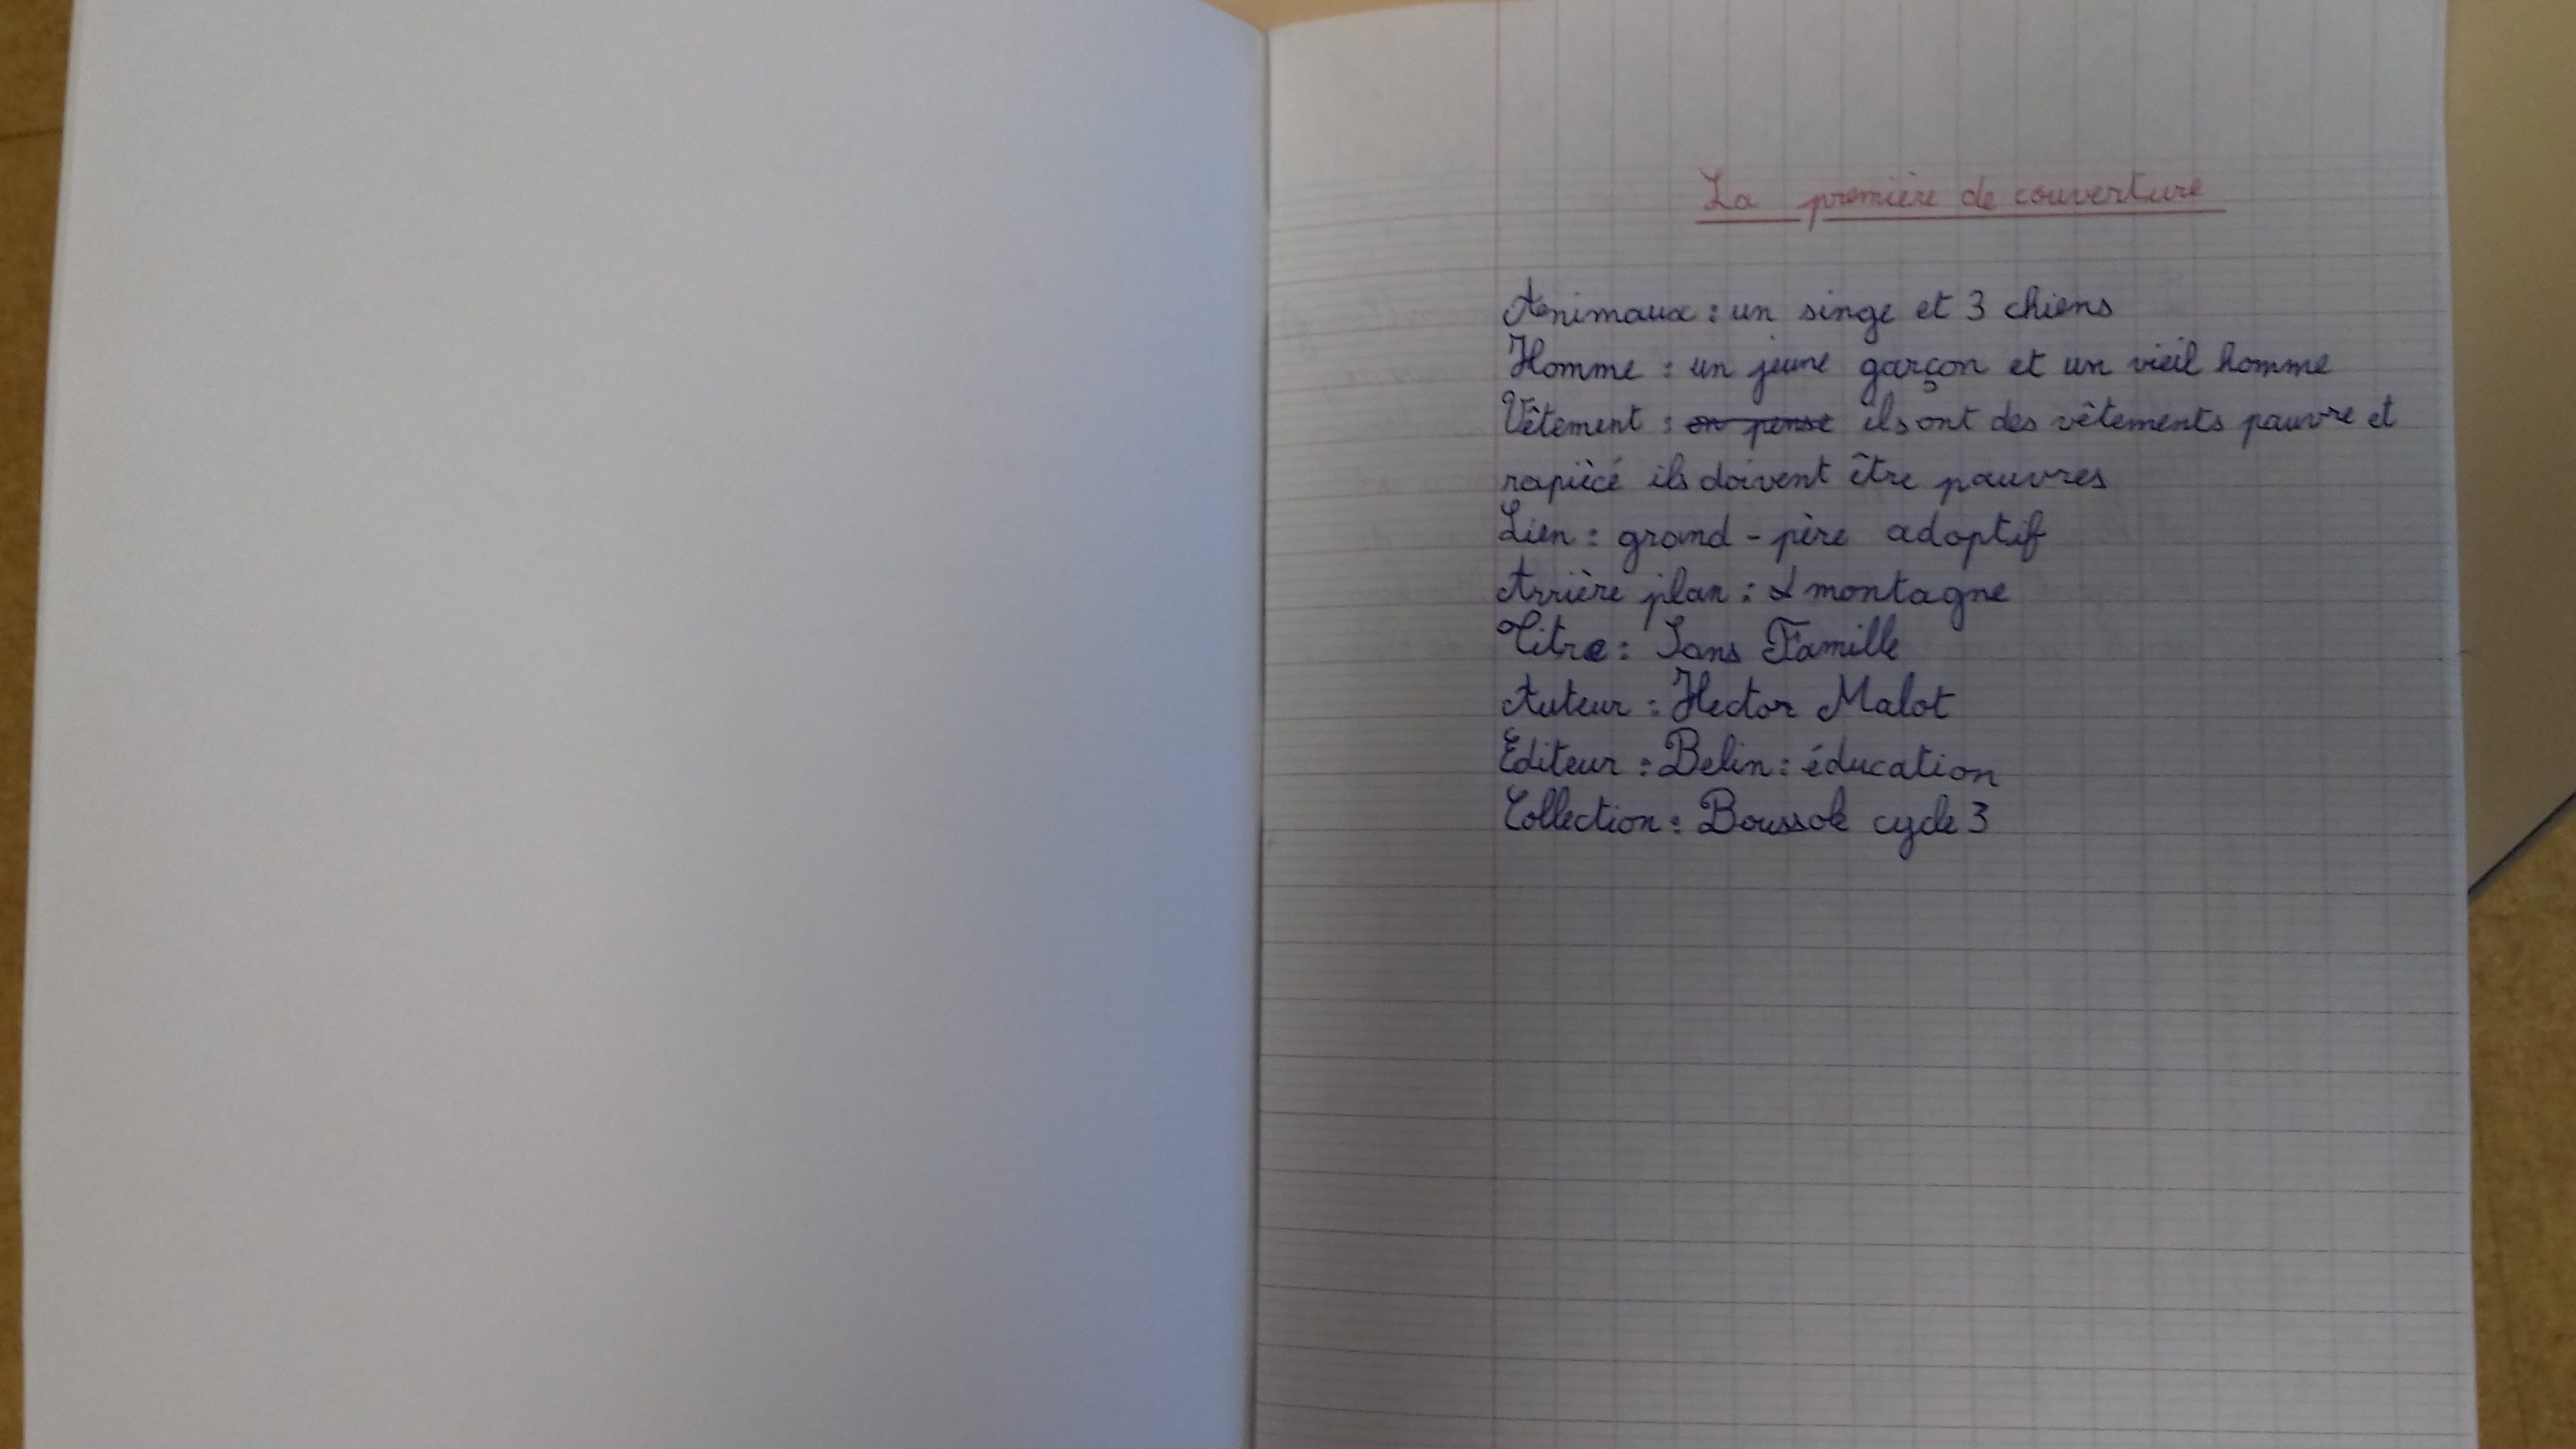 La première de couverture
Animaux : un singe et 3 chiens
Homme : un jeune garçon et un vieil homme
Vêtement : on pense ils ont des vêtements pauvre et
rapiècé ils doivent être pauvres
Lien : grand-père adoptif
Arrière plan : montagne
Titre : Sans Famille
Auteur : Hector Malot
Editeur : Belin : éducation
Collection : Boussole cycle 3